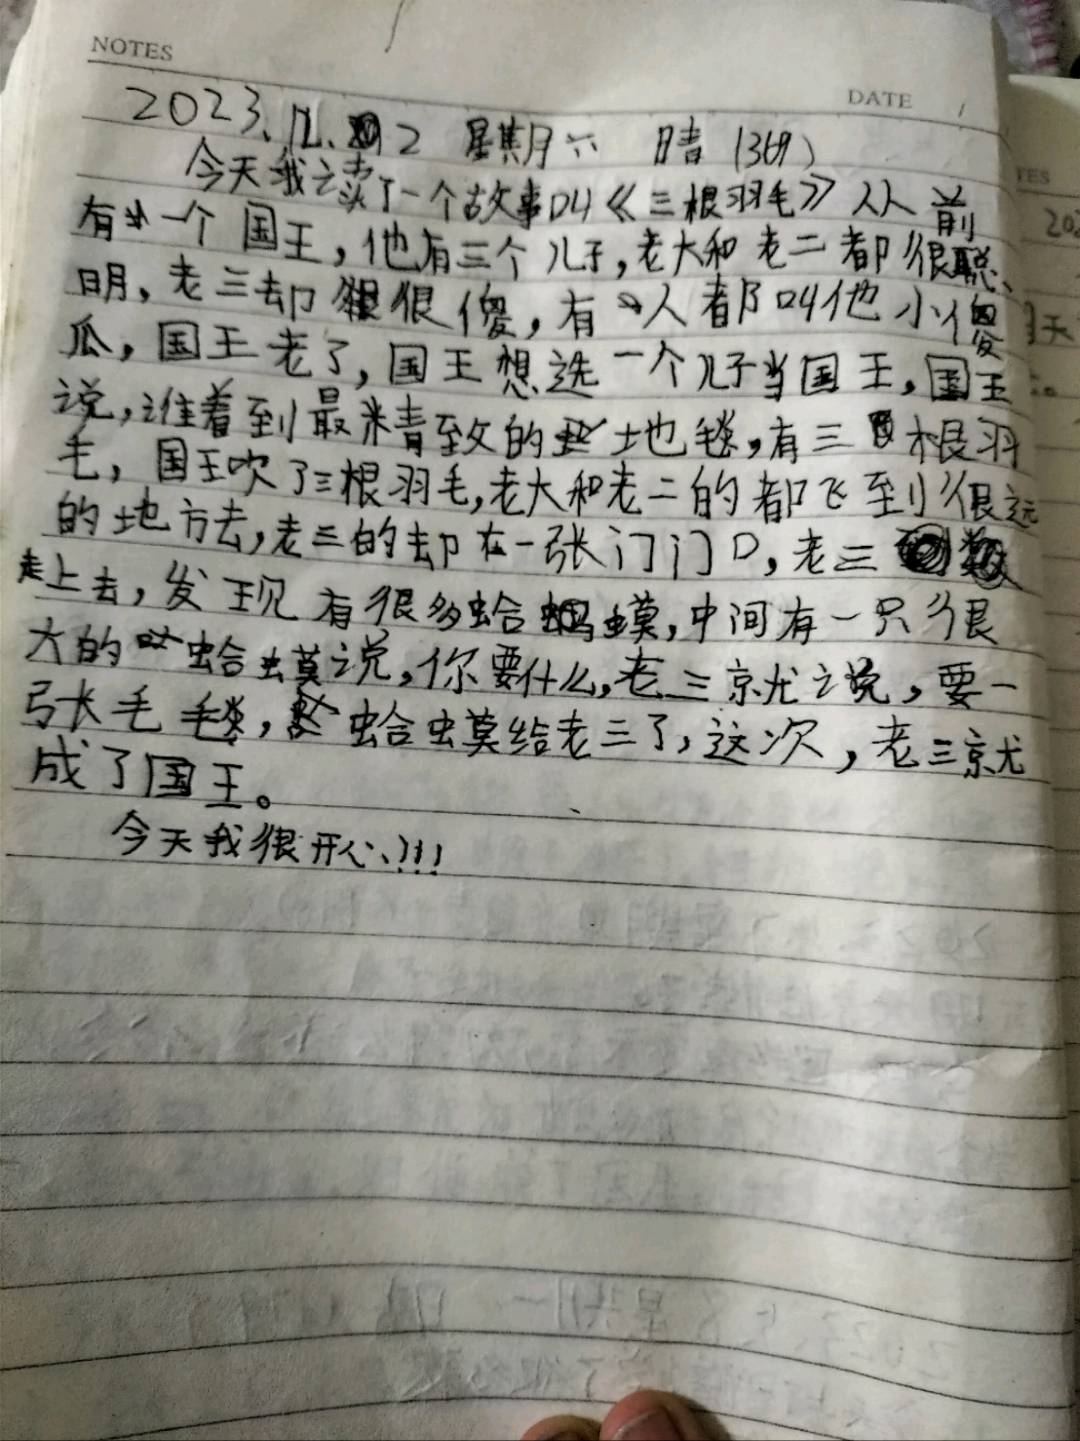 NOTES
DATE
2023.12.2 星期六 晴 (369)
今天我读了一个故事叫《三根羽毛》从前
有一个国王，他有三个儿子，老大和老二都很聪
明，老三却很傻，有人都叫他小傻
瓜，国王老了，国王想选一个儿子当国王，国王
说，谁着到最精致的地毯，有三根羽
毛，国王吹了三根羽毛，老大和老二的都飞到很远
的地方去，老三的却在一张门门口，老三
走上去，发现有很多蛤蟆，中间有一只很
大的蛤蟆说，你要什么，老三就说，要一
张毛毯，蛤蟆给老三了，这次，老三就
成了国王。
今天我很开心!!!